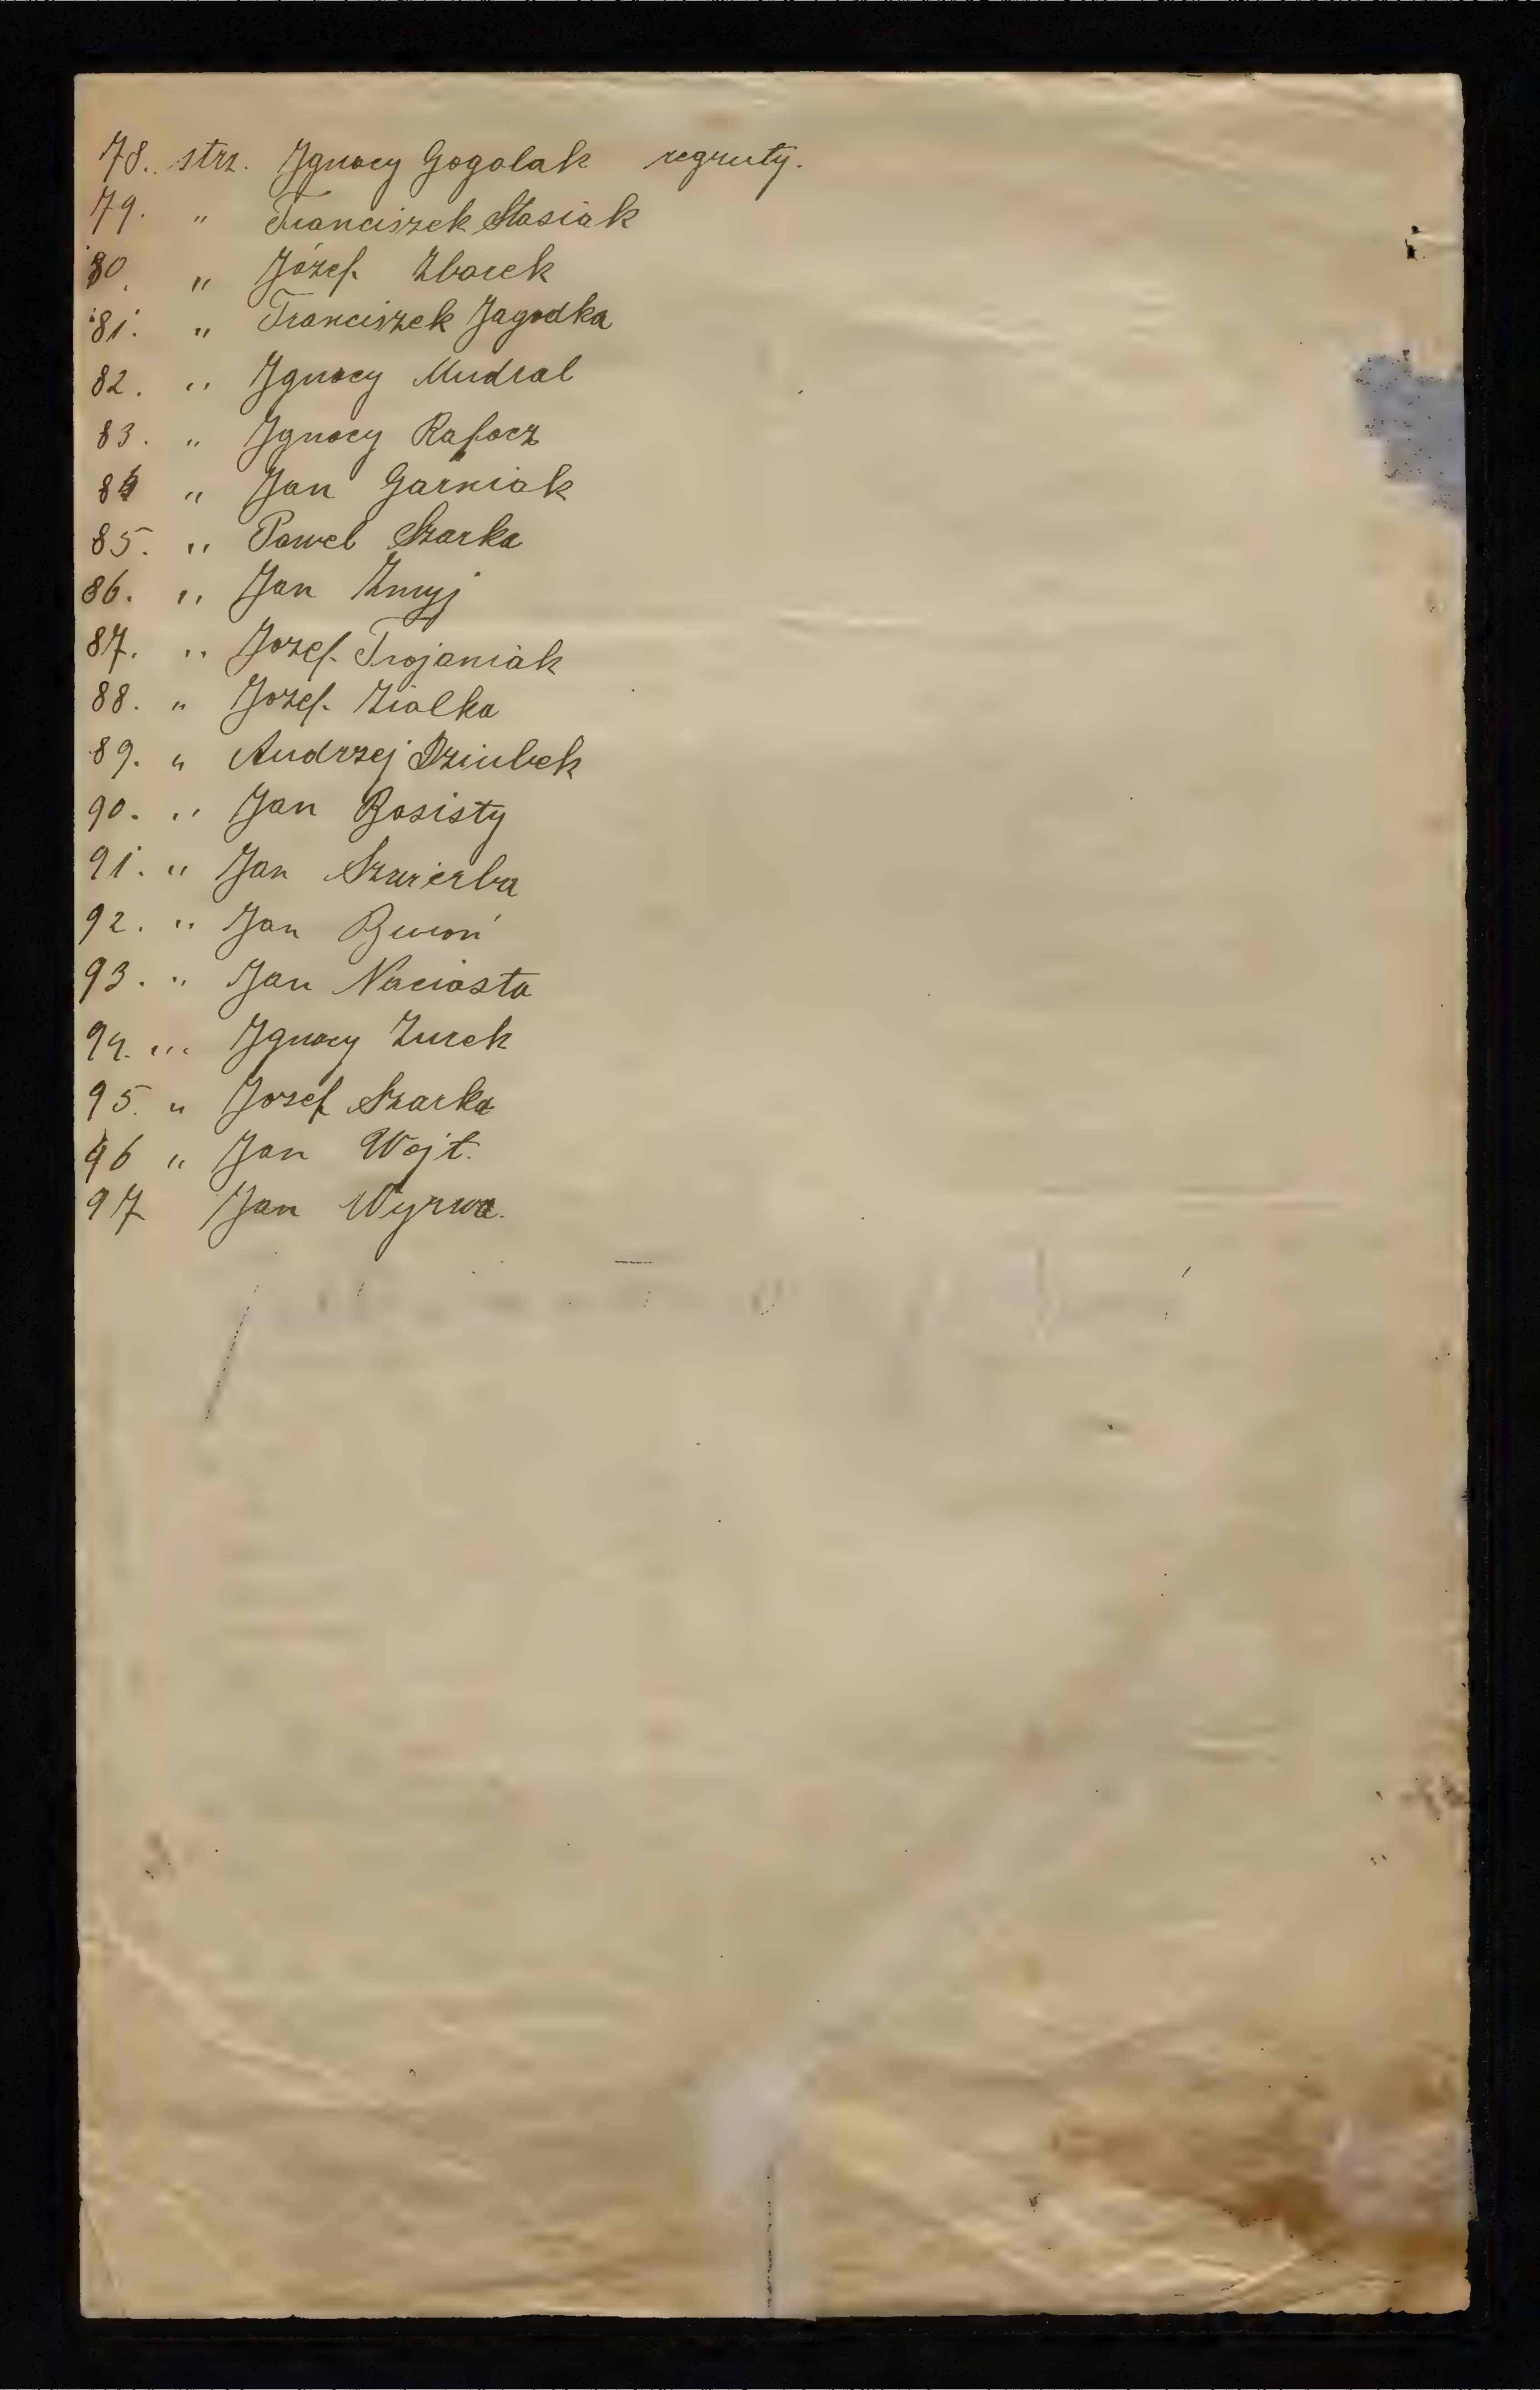 78. strz. Ignacy Gogolak regruty.
79. " Franciszek Stasiak
80. " Józef Zborek
81. " Franciszek Jagodka
82. " Ignacy Mudral
83. " Ignacy Rafacz
84 " Jan Garniak
85. " Pawel Szarka
86. " Jan Żmyj
87. " Jozef Trojaniak
88. " Jozef Ziolka
89. " Andrzej Dziubek
90. " Jan Bosisty
91. " Jan
92. " Jan
93. " Jan Naciasta
94. " Ignacy Zurek
95. " Jozef Szarka
96 " Jan Wojt.
97 Jan Wyrwa.